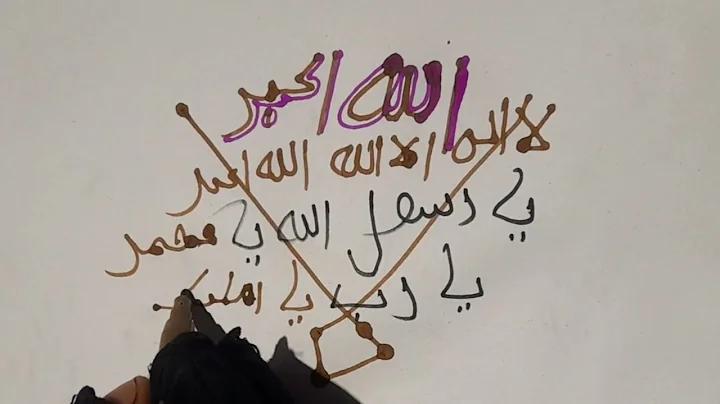 الله اكبر
لا اله الا الله الله اكبر
يا رسول الله يا محمد
يا رب يا